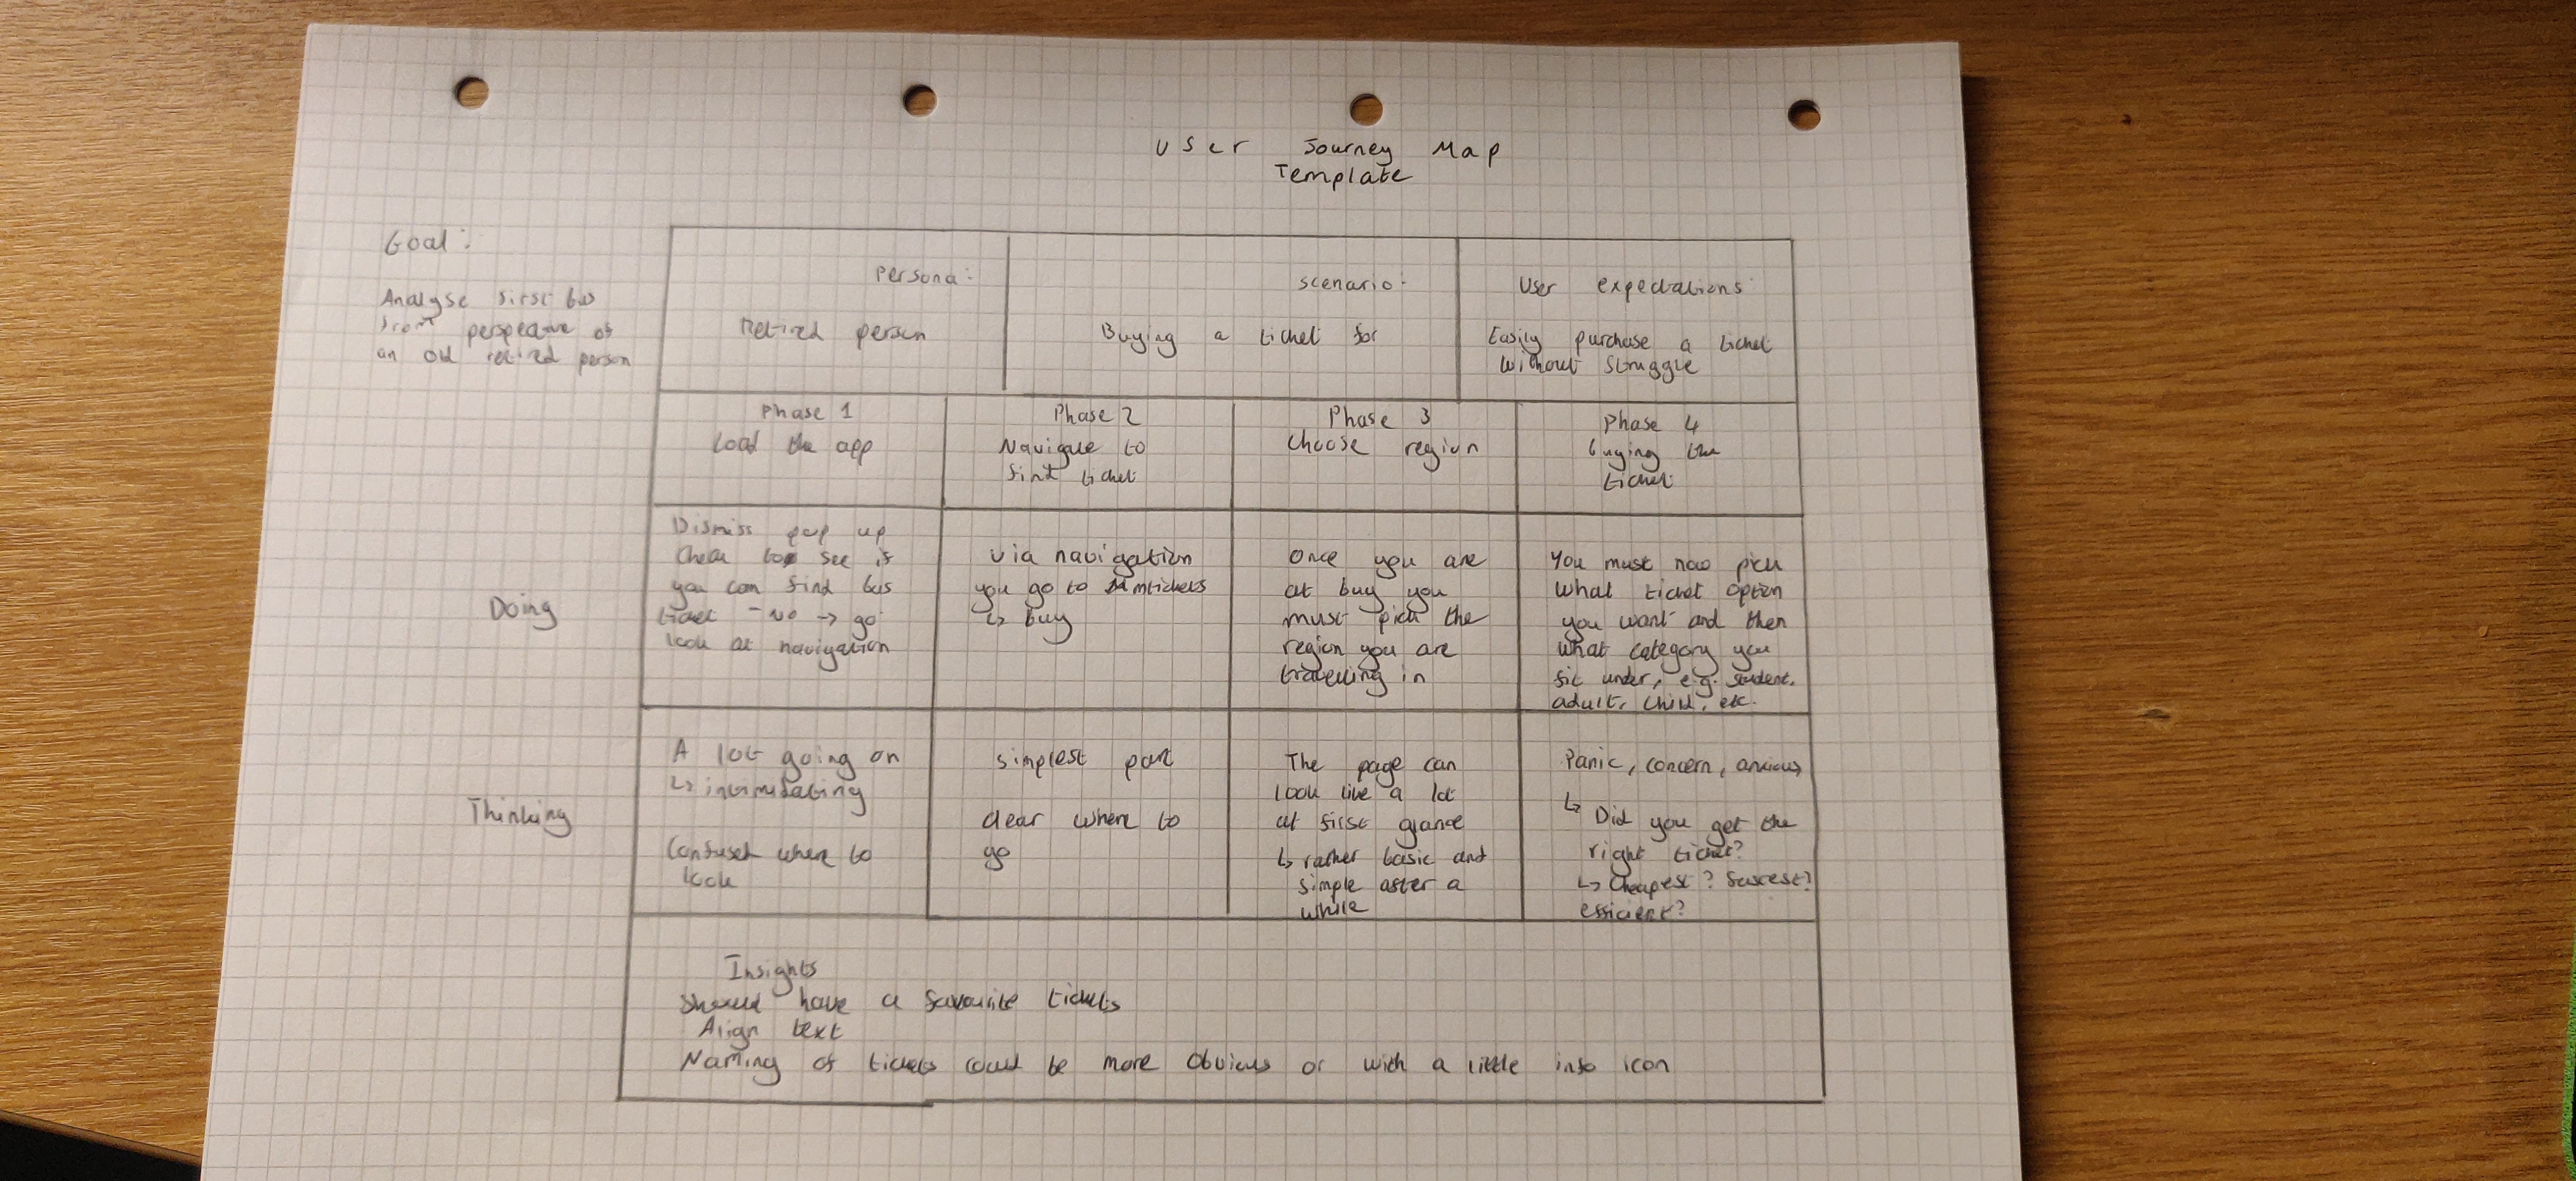 User Journey Map
Template
Goal:
Analyse first bus
from perspective of
an old retired person
Persona:
Retired person
scenario:
Buying a ticket for
User expectations:
Easily purchase a ticket
without struggle
Phase 1
Load the app
Phase 2
Navigate to
find ticket
Phase 3
Choose region
Phase 4
buying the
ticket
Doing
Dismiss pop up
Check to see if
you can find bus
ticket - No → go
look at navigation
via navigation
you go to mtickets
↳ buy
Once you are
at buy you
must pick the
region you are
travelling in
You must now pick
what ticket option
you want and then
what category you
fit under, e.g. student,
adult, child, etc.
Thinking
A lot going on
↳ intimidating
Confused where to
look
simplest part
clear where to
go
The page can
look like a lot
at first glance
↳ rather basic and
simple after a
while
Panic, concern, anxious
↳ Did you get the
right ticket?
↳ Cheapest? fastest?
efficient?
Insights
Should have a favourite tickets
Align text
Naming of tickets could be more obvious or with a little info icon